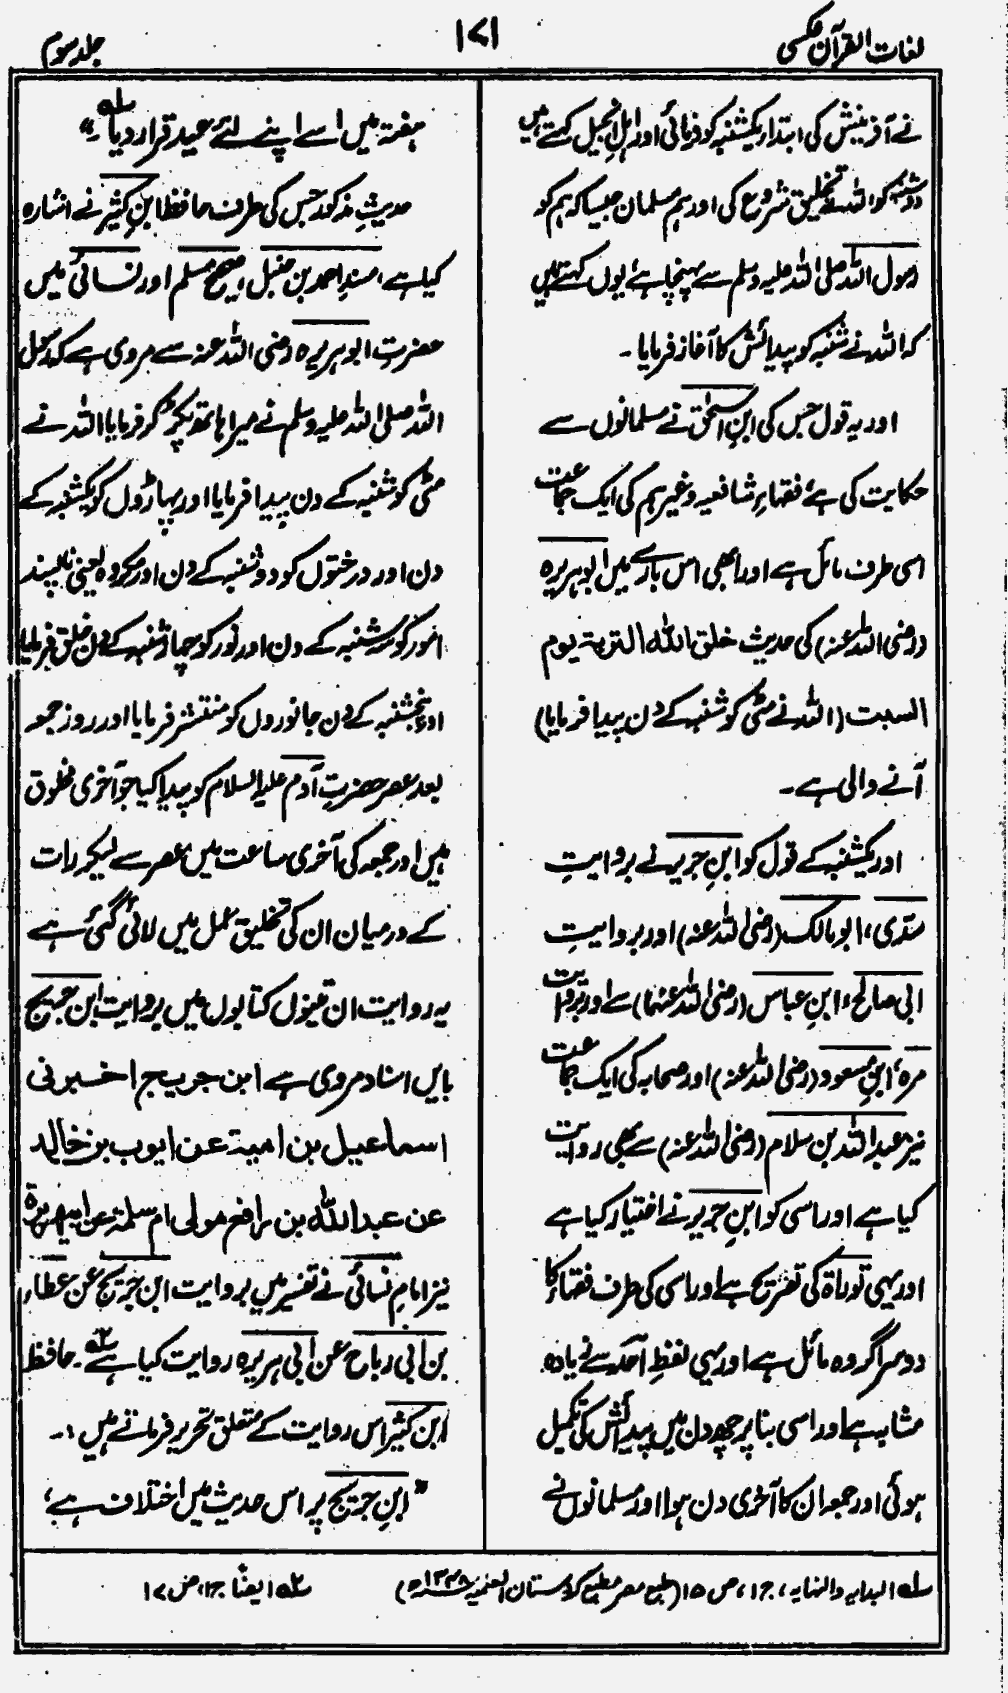 لغات القرآن عکسی
۱۷۱
جلد سوم
نے آفرینش کی ابتدا یکشنبہ کو فرمائی اور اہل انجیل کہتے ہیں
دوشنبہ کو اللہ نے تخلیق شروع کی اور ہم مسلمان جیسا کہ ہم کو
رسول اللہ صلی اللہ علیہ وسلم سے پہنچا ہے یوں کہتے ہیں
کہ اللہ نے شنبہ کو پیدائش کا آغاز فرمایا۔
اور یہ قول جس کی ابنِ اسحٰق نے مسلمانوں سے
حکایت کی ہے فقہاءِ شافعیہ وغیرہم کی ایک جماعت
اسی طرف مائل ہے اور ابھی اس بارے میں ابو ہریرہ
(رضی اللہ عنہ) کی حدیث خلق اللہ التربۃ یوم
السبت (اللہ نے مٹی کو شنبہ کے دن پیدا فرمایا)
آنے والی ہے۔
اور یکشنبہ کے قول کو ابنِ جریر نے بروایتِ
سدّی، ابو مالک (رضی اللہ عنہ) اور بروایتِ
ابی صالح، ابنِ عباس (رضی اللہ عنہما) سے اور بروایت
مرہ، ابنِ مسعود (رضی اللہ عنہ) اور صحابہ کی ایک جماعت
نیز عبد اللہ بن سلام (رضی اللہ عنہ) سے بھی روایت
کیا ہے اور اسی کو ابنِ جریر نے اختیار کیا ہے
اور یہی توراۃ کی تصریح ہے اور اسی کی طرف فقہاء کا
دوسرا گروہ مائل ہے اور یہی لفظِ اَحَد سے زیادہ
مشابہ ہے اور اسی بنا پر چھ دن میں پیدائش کی تکمیل
ہوئی اور جمعہ ان کا آخری دن ہوا اور مسلمانوں نے
ہفتہ میں اسے اپنے لئے عید قرار دیا۔" ؎۱
حدیثِ مذکور جس کی طرف حافظ ابنِ کثیر نے اشارہ
کیا ہے، مسندِ احمد بن حنبل، صحیح مسلم اور نسائی میں
حضرت ابو ہریرہ رضی اللہ عنہ سے مروی ہے کہ رسول
اللہ صلی اللہ علیہ وسلم نے میرا ہاتھ پکڑ کر فرمایا اللہ نے
مٹی کو شنبہ کے دن پیدا فرمایا اور پہاڑوں کو یکشنبہ کے
دن اور درختوں کو دوشنبہ کے دن اور مکروہ یعنی ناپسند
امور کو سہ شنبہ کے دن اور نور کو چہار شنبہ کے دن خلق فرمایا
اور پنجشنبہ کے دن جانوروں کو منتشر فرمایا اور روز جمعہ
بعد عصر حضرتِ آدم علیہ السلام کو پیدا کیا جو آخری مخلوق
ہیں اور جمعہ کی آخری ساعت میں عصر سے لیکر رات
کے درمیان ان کی تخلیق عمل میں لائی گئی ہے
یہ روایت ان تینوں کتابوں میں بروایت ابن جریج
بایں اسناد مروی ہے ابن جریج اخبرنی
اسماعیل بن امیۃ عن ایوب بن خالد
عن عبد اللہ بن رافع مولی ام سلمۃ عن ابی ہریرۃ
نیز امامِ نسائی نے تفسیر میں بروایت ابن جریج عن عطاء
بن ابی رباح عن ابی ہریرہ روایت کیا ہے ؎۲۔ حافظ
ابن کثیر اس روایت کے متعلق تحریر فرماتے ہیں :۔
"ابنِ جریج پر اس حدیث میں اختلاف ہے،
؎۱ البدایہ والنہایہ، ج ۱، ص ۱۵ (طبع مصر مطبع کردستان العلمیہ ۱۳۴۸ھ)
؎۲ ایضًا ج ۱، ص ۱۷